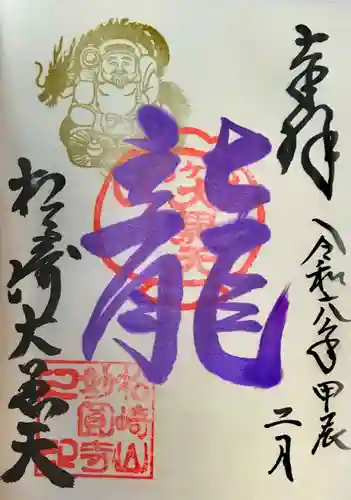 奉拝
令和六年 甲辰
二月
龍
松ヶ崎大黒天
松崎山
妙圓寺